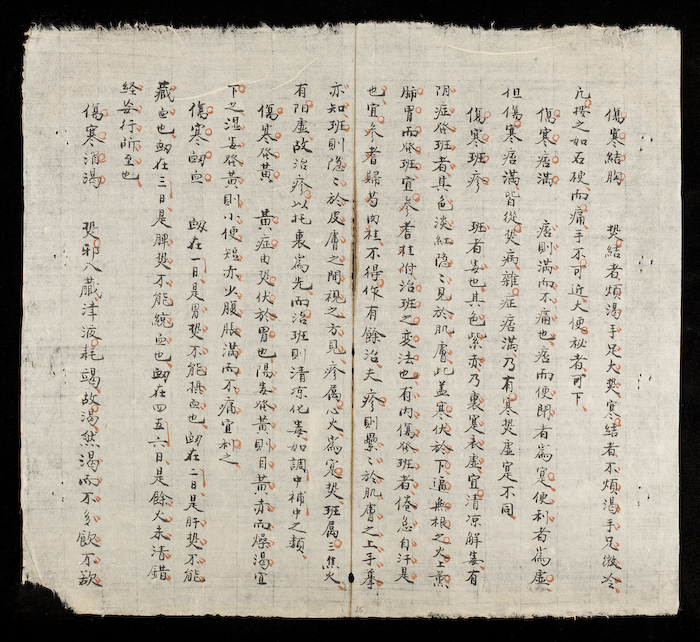 傷寒結胸 熱結者煩渴手足大熱寒結者不煩渴手足微冷
凡按之如石硬而痛手不可近大便秘者可下
傷寒痞滿 痞則滿而不痛也痞而便閉者為寔便利者為虛
但傷寒痞滿皆從熱病雜症痞滿乃有寒熱虛寔不同
傷寒班疹 班者毒也其色紫赤乃裏寔表虛宜清凉解毒有
阴症發班者其色淡紅隐〻見於肌膚此盖寒伏於下逼無根之火上熏
肺胃而發班宜參耆桂附治班之变法也有內傷發班者倦怠自汗是
也宜參耆歸芍肉桂不得作有餘治夫疹則纍〻於肌膚之上手摹
亦知班則隐〻於皮膚之間視之方見疹属心火為寔熱班属三焦火
有阳虛故治疹以托裏為先而治班則清凉化毒加調中補中之類
傷寒發黃 黃症由熱伏於胃也陽毒發黃則目黃赤而燥渴宜
下之湿毒發黃則小便短赤少腹脹滿而不痛宜利之
傷寒衂血 衂在一日是胃熱不能攝血也衂在二日是肝熱不能
藏血也衂在三日是脾熱不能統血也衂在四五六日是餘火未清錯
経妄行所至也
傷寒消渴 熱邪入藏津液耗竭故渴然渴而不多飲不欲